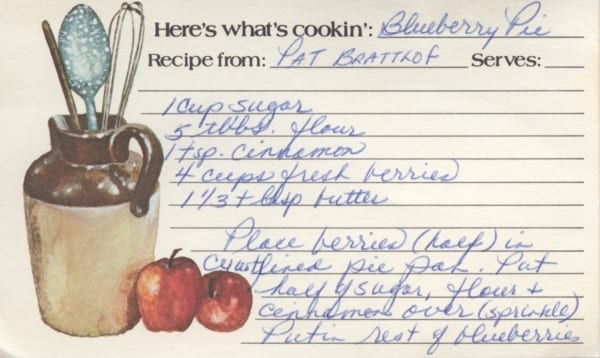 Here's what's cookin': Blueberry Pie
Recipe from: PAT BRATTLOF Serves:
1 cup sugar
5 tbbs. flour
1 tsp. cinnamon
4 cups fresh berries
1 1/3 tbsp butter
Place berries (half) in
crust lined pie pan. Put
half of sugar, flour +
cinnamon over (sprinkle)
Put in rest of blueberries